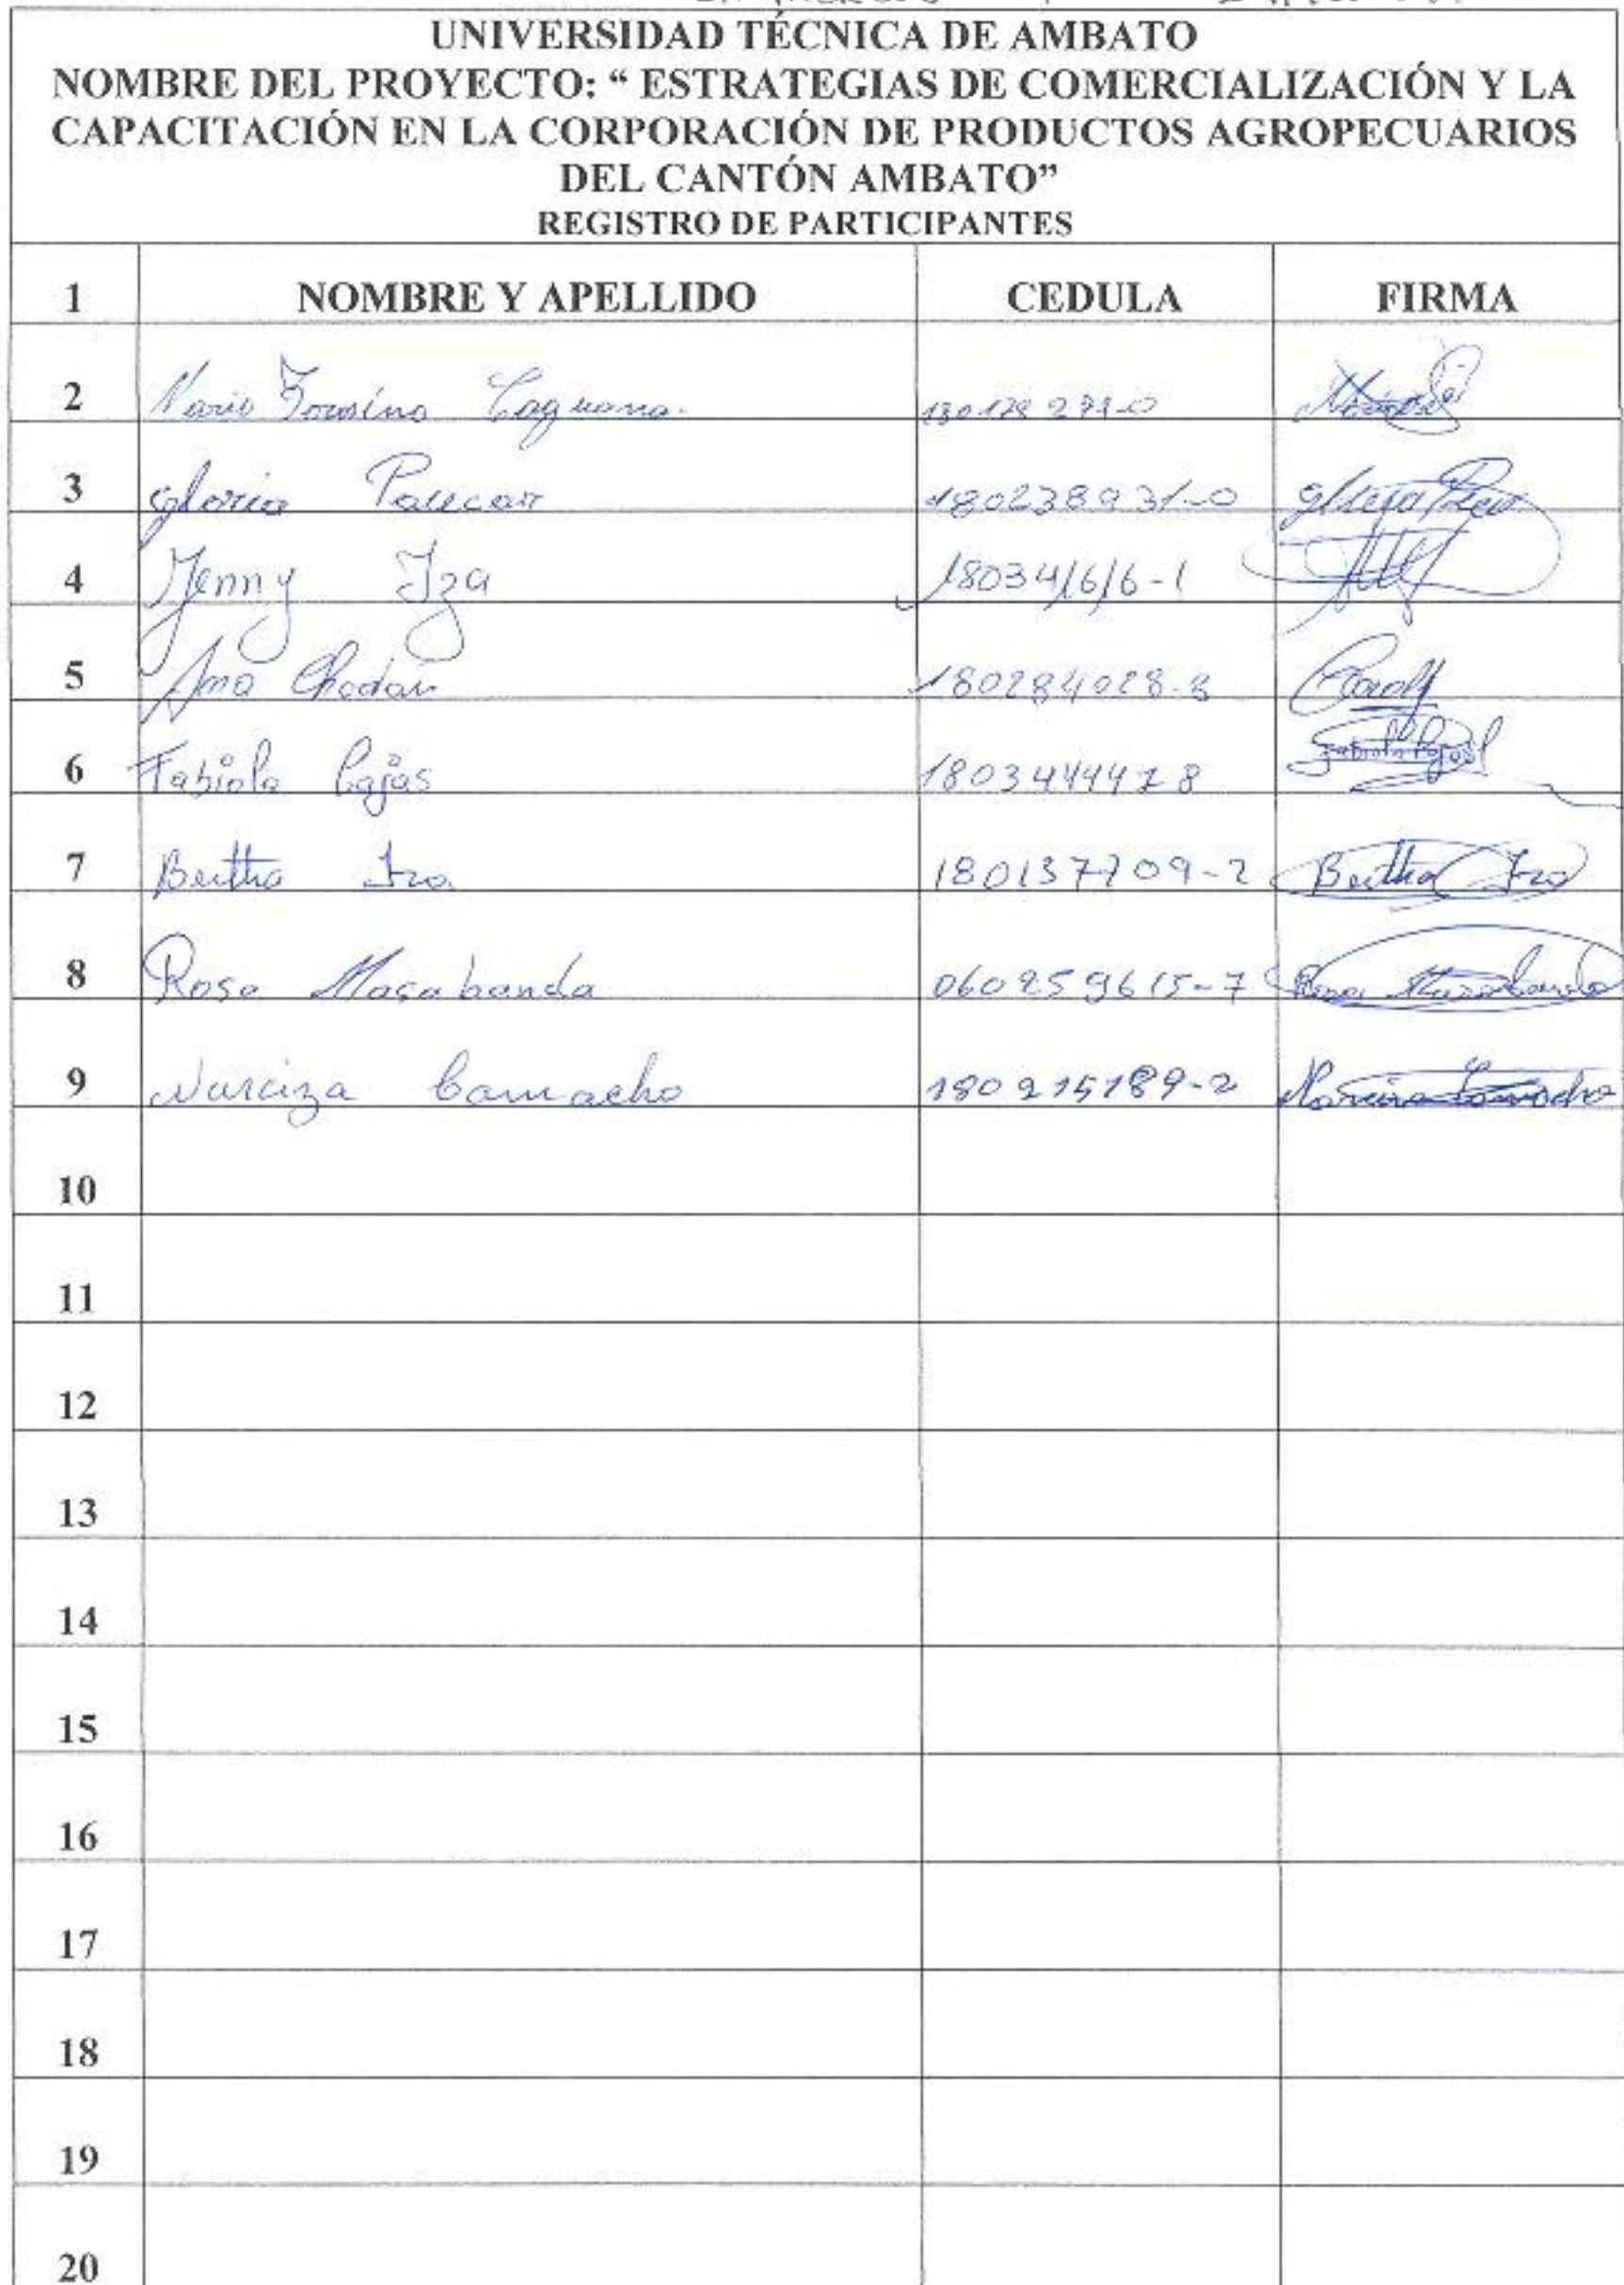 UNIVERSIDAD TÉCNICA DE AMBATO
NOMBRE DEL PROYECTO: “ ESTRATEGIAS DE COMERCIALIZACIÓN Y LA
CAPACITACIÓN EN LA CORPORACIÓN DE PRODUCTOS AGROPECUARIOS
DEL CANTÓN AMBATO”
REGISTRO DE PARTICIPANTES
1 NOMBRE Y APELLIDO CEDULA FIRMA
2
3 Gloria Paucar 180238931-0
4 Jenny Iza 180341616-1
5 Ana 180284028-3
6 Fabiola Cajas Fabiola Cajas
7 Bertha Iza 180137709-2 Bertha Iza
8 Rosa Masabanda 060259615-7 Rosa Masabanda
9 Narciza Camacho 180215189-2 Narciza Camacho
10
11
12
13
14
15
16
17
18
19
20